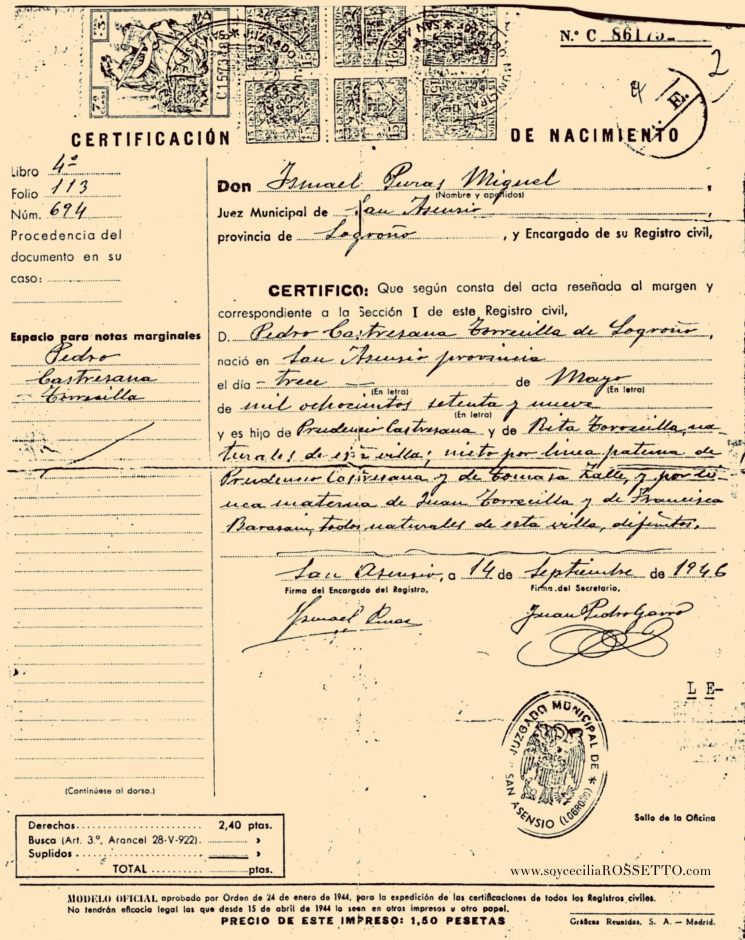 N.º C 86175
2
E.
CERTIFICACIÓN DE NACIMIENTO
Libro 4º
Folio 113
Núm. 694
Procedencia del
documento en su
caso:
Espacio para notas marginales
Pedro
Castresana
Torrecilla
(Continúese al dorso.)
Don Ismael Puras Miguel,
(Nombre y apellidos)
Juez Municipal de San Asensio
provincia de Logroño, y Encargado de su Registro civil,
CERTIFICO: Que según consta del acta reseñada al margen y
correspondiente a la Sección I de este Registro civil,
D. Pedro Castresana Torrecilla de Logroño,
nació en San Asensio provincia
el día trece de Mayo
(En letra) (En letra)
de mil ochocientos setenta y nueve
(En letra)
y es hijo de Prudencio Castresana y de Rita Torrecilla, na
turales de esta villa; nieto por linea paterna de
Prudencio Castresana y de Tomasa Lalle, y por li
nea materna de Juan Torrecilla y de Francisca
todos naturales de esta villa, difuntos.
San Asensio, a 14 de Septiembre de 1946
Firma del Encargado del Registro, Firma del Secretario,
Ismael Puras Juan Pedro Garro
L E-
JUZGADO MUNICIPAL DE
SAN ASENSIO (LOGROÑO)
Sello de la Oficina
Derechos 2,40 ptas.
Busca (Art. 3.º, Arancel 28-V-922) »
Suplidos »
TOTAL ptas.
www.soyceciliaROSSETTO.com
MODELO OFICIAL aprobado por Orden de 24 de enero de 1944, para la expedición de las certificaciones de todos los Registros civiles.
No tendrán eficacia legal las que desde 15 de abril de 1944 lo seen en otros impresos u otro papel.
PRECIO DE ESTE IMPRESO: 1,50 PESETAS
Gráficas Reunidas, S. A. — Madrid.